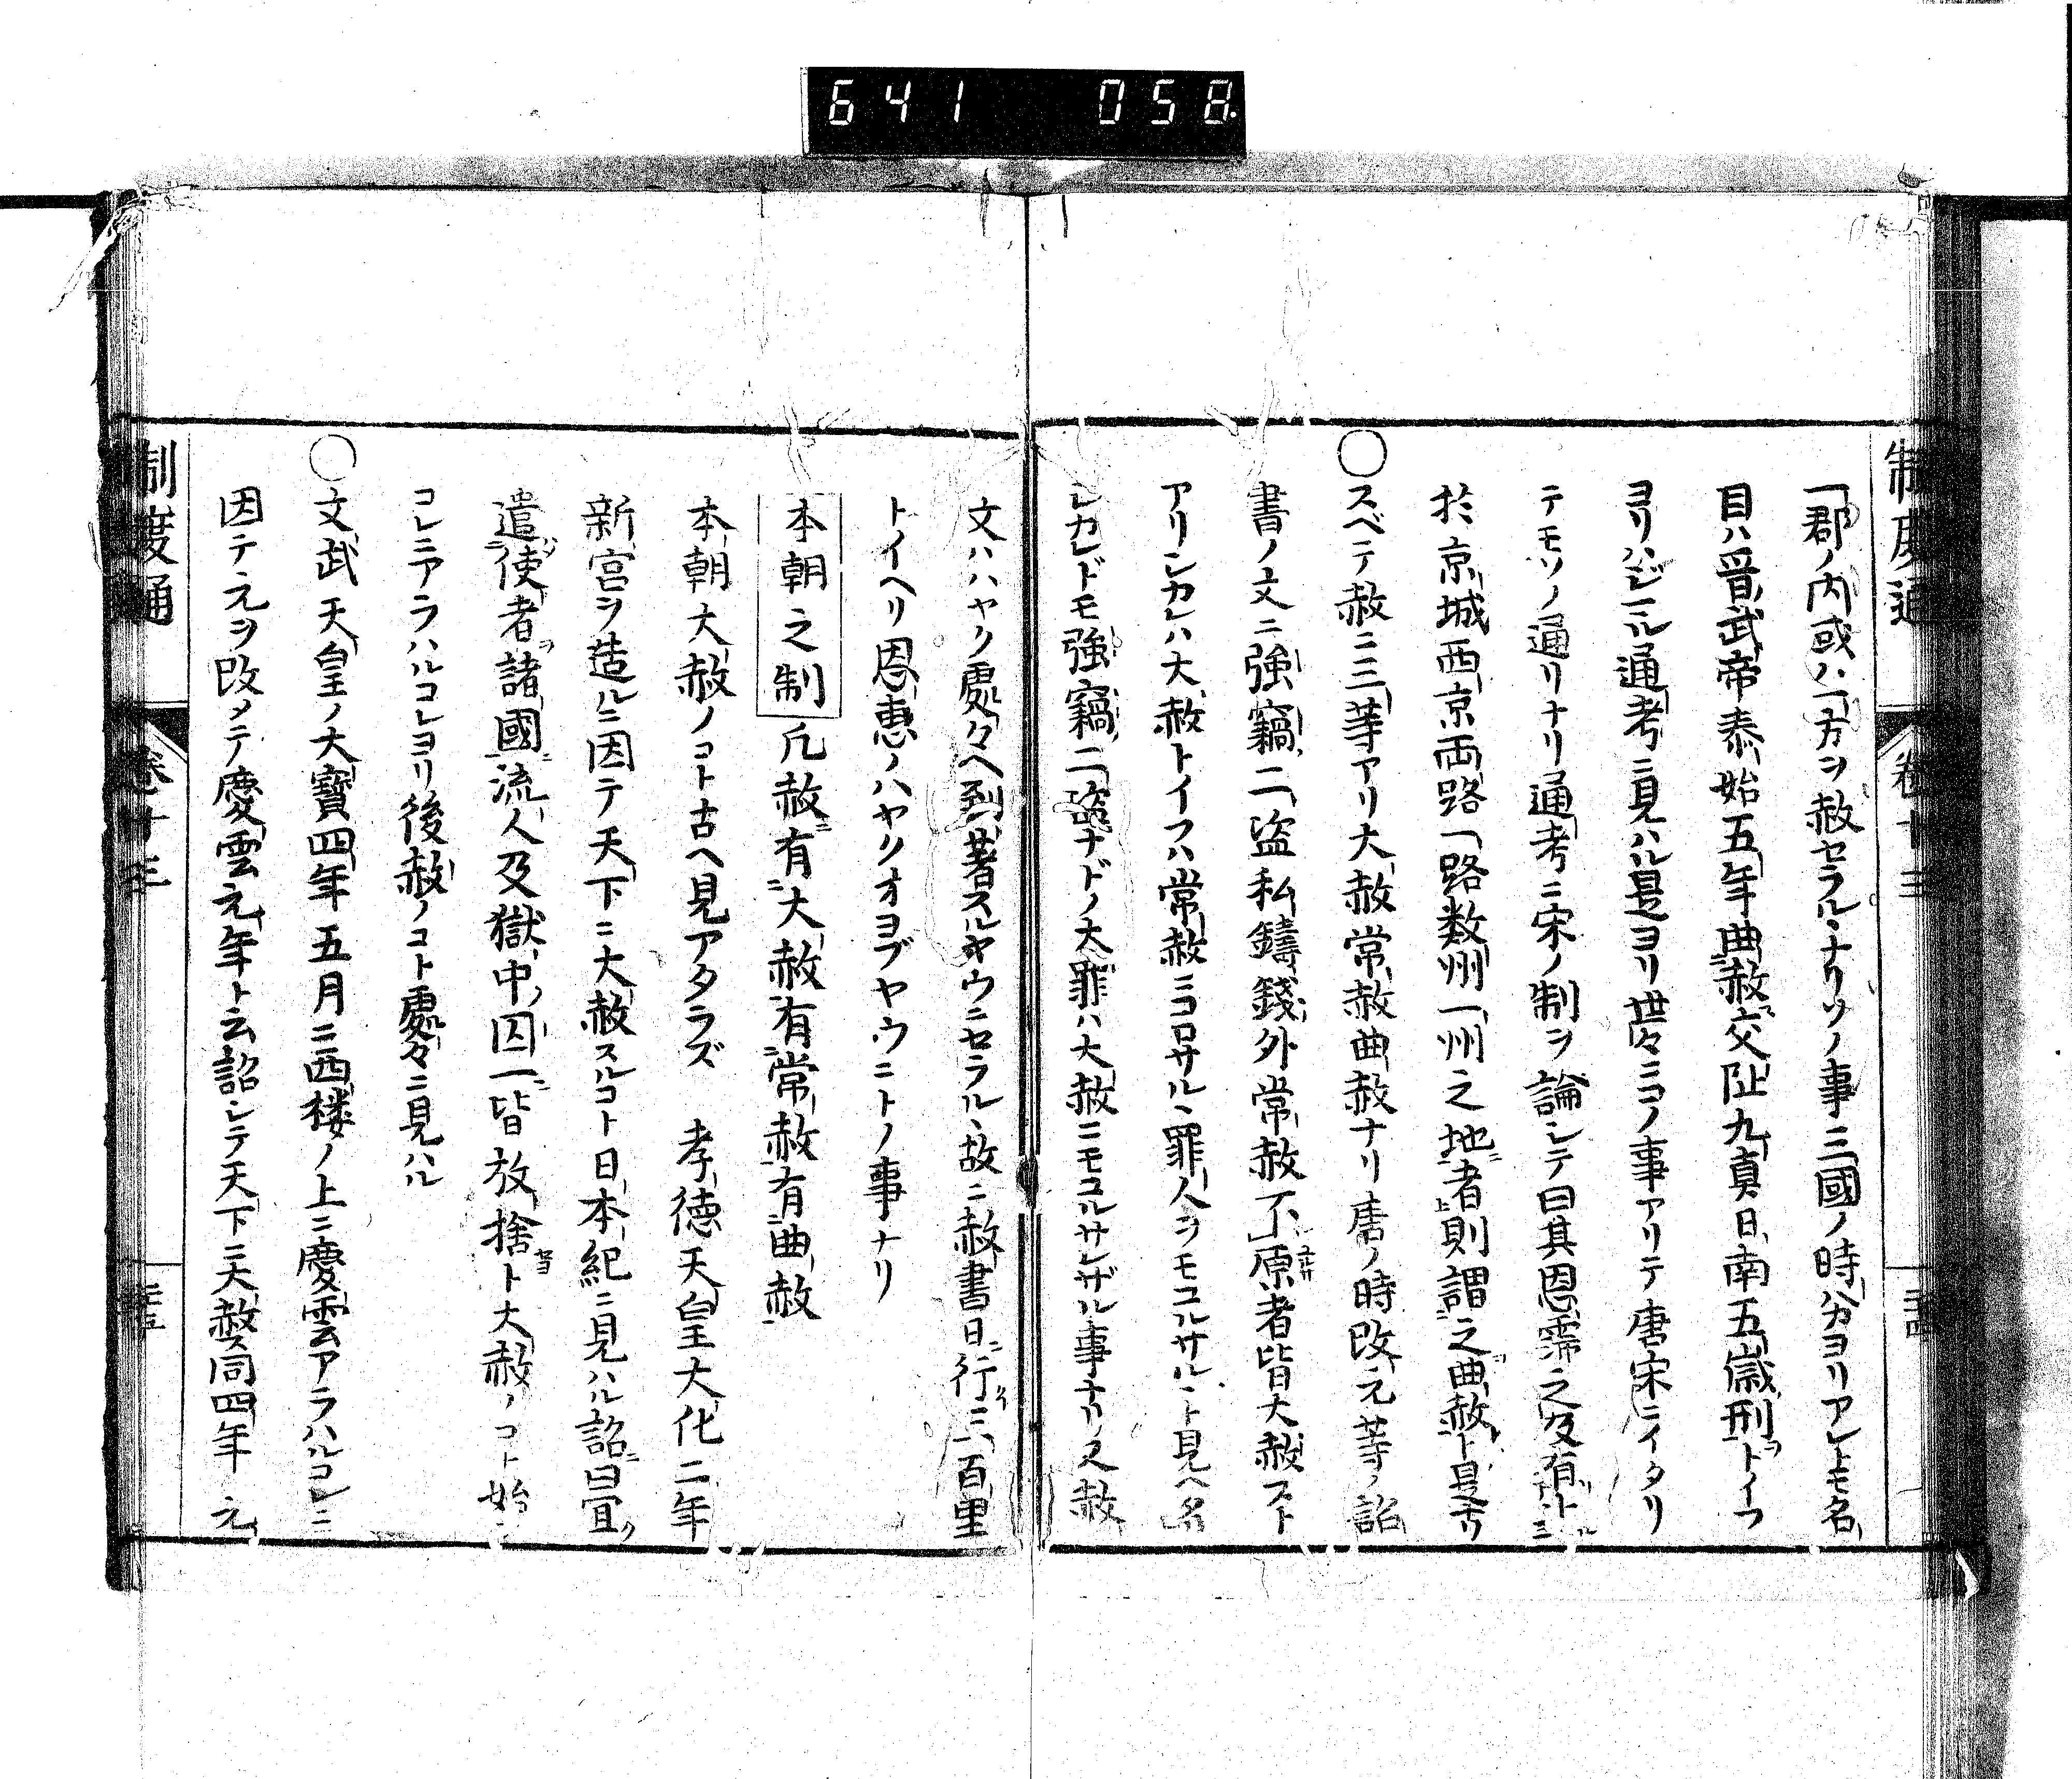 641 058
制度通 卷十三
一郡ノ内或ハ一方ヲ赦セラルヽナリソノ事三國ノ時分ヨリアレトモ名
目ハ晋武帝泰始五年曲赦交阯九眞日南五歳刑トイフ
ヨリハジマル通考ニ見ハル是ヨリ世々ニコノ事アリテ唐宋ニイタリ
テモソノ通リナリ通考ニ宋ノ制ヲ論シテ曰其恩霈之及有止
於京城西京両路一路数州一州之地者則謂之曲赦ト是ナリ
○スベテ赦ニ三等アリ大赦常赦曲赦ナリ唐ノ時改元等ノ詔
書ノ文ニ強竊二盗私鑄錢外常赦不原者皆大赦スト
アリシカレハ大赦トイフハ常赦ニコロサルヽ罪人ヲモユルサルヽト見ヘタリ
シカレドモ強竊二盗ナドノ大罪ハ大赦ニモユルサレザル事ナリ又赦
文ハハヤク處々ヘ到著スルヤウニセラルヽ故ニ赦書日行三百里
トイヘリ恩惠ノハヤクオヨブヤウニトノ事ナリ
本朝之制 凡赦有大赦有常赦有曲赦
本朝大赦ノコト古ヘ見アタラズ 孝徳天皇大化二年
新宮ヲ造ルニ因テ天下ニ大赦スルコト日本紀ニ見ハル詔曰宜
遣使者諸國流人及獄中囚一皆放捨ト大赦ノコト始テ
コレニアラハルコレヨリ後赦ノコト處々ニ見ハル
○文武天皇ノ大寶四年五月ニ西楼ノ上ニ慶雲アラハルコレニ
因テ元ヲ改メテ慶雲元年ト云詔シテ天下ニ大赦ス同四年 元
制度通 卷十三